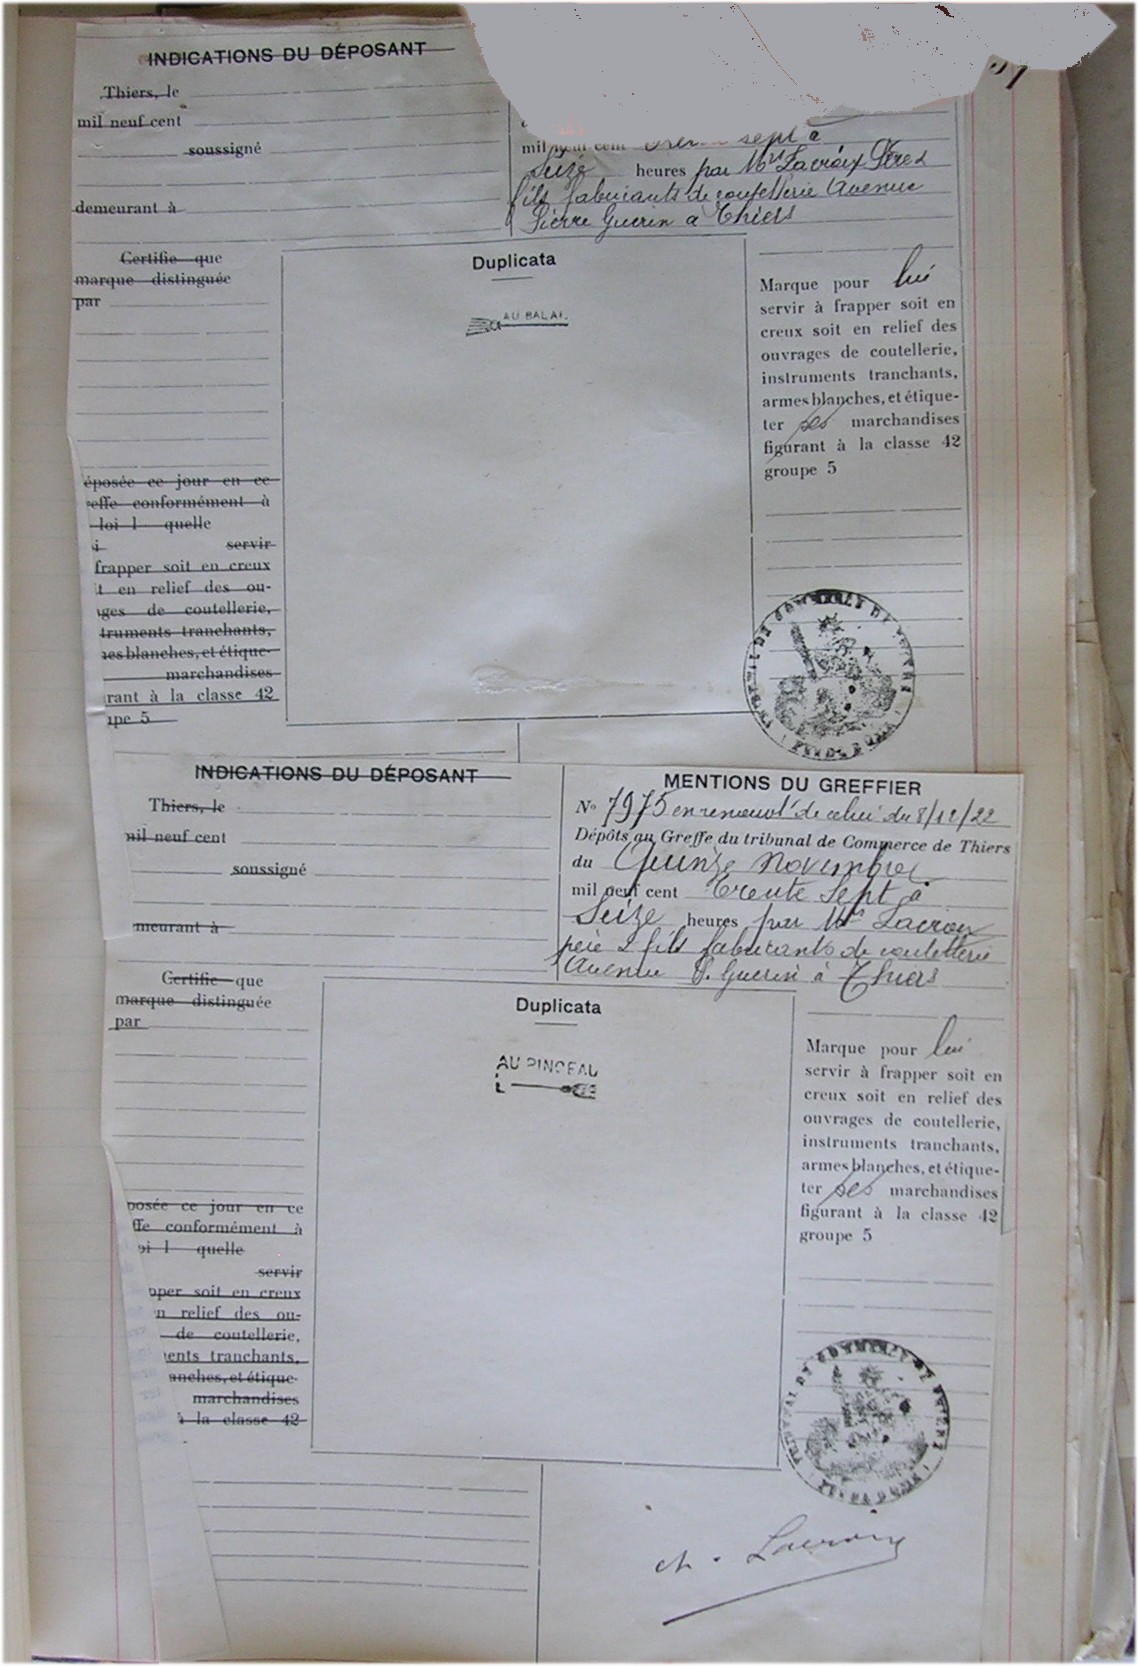 INDICATIONS DU DÉPOSANT
Thiers, le
mil neuf cent
soussigné
demeurant à
mil neuf cent sept à
Seize heures par Mrs Lacroix Père &
fils fabricants de coutellerie Avenue
Pierre Guerin à Thiers
Certifie que
marque distinguée
par
éposée ce jour en ce
reffe conformément à
loi l quelle
i servir
frapper soit en creux
t en relief des ou-
ages de coutellerie,
truments tranchants,
es blanches, et étique-
marchandises
rant à la classe 42
upe 5
Duplicata
AU BALAI
Marque pour lui
servir à frapper soit en
creux soit en relief des
ouvrages de coutellerie,
instruments tranchants,
armes blanches, et étique-
ter ses marchandises
figurant à la classe 42
groupe 5
TRIBUNAL DE COMMERCE DE THIERS
INDICATIONS DU DÉPOSANT
Thiers, le
mil neuf cent
soussigné
meurant à
MENTIONS DU GREFFIER
No 7975 en renouvt de celui du 8/12/22
Dépôts au Greffe du tribunal de Commerce de Thiers
du Quinze Novembre
mil neuf cent trente sept à
Seize heures par Mrs Lacroix
père & fils fabricants de coutellerie
Avenue P. Guerin à Thiers
Certifie que
marque distinguée
par
posée ce jour en ce
ffe conformément à
oi l quelle
servir
pper soit en creux
n relief des ou-
de coutellerie,
ents tranchants,
anches, et étique-
marchandises
à la classe 42
Duplicata
AU PINCEAU
L
Marque pour lui
servir à frapper soit en
creux soit en relief des
ouvrages de coutellerie,
instruments tranchants,
armes blanches, et étique-
ter ses marchandises
figurant à la classe 42
groupe 5
TRIBUNAL DE COMMERCE DE THIERS
ch. Lacroix